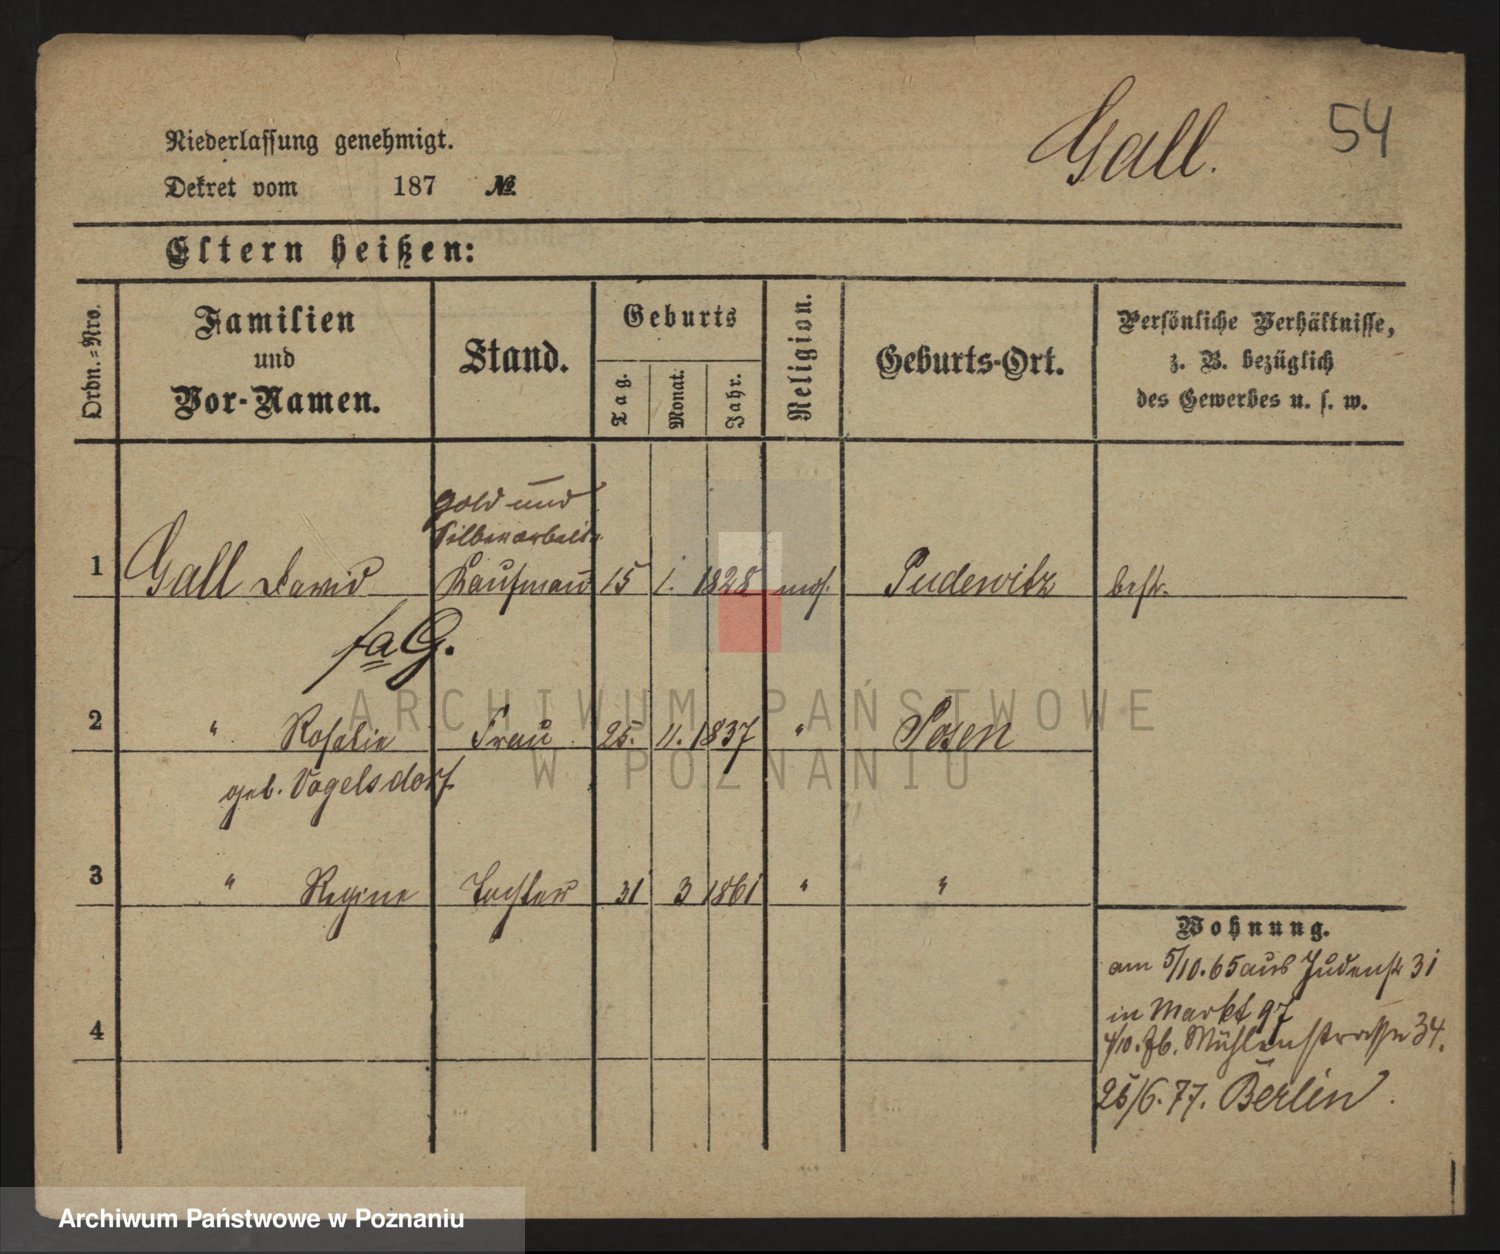 Gall.
54
Niederlassung genehmigt.
Dekret vom 187 №
Eltern heißen:
Ordn.=Nro.
Familien
und
Vor-Namen.
Stand.
Geburts
Tag.
Monat.
Jahr.
Religion.
Geburts-Ort.
Persönliche Verhältnisse,
z. B. bezüglich
des Gewerbes u. s. w.
Gold und
Silberarbeiter
1 Gall David Kaufmann 15 1. 1828 mos. Pudewitz best.
fa G.
2 " Rosalie Frau 25. 11. 1837 " Posen
geb. Vogelsdorf
3 " Regine Tochter 31 3 1861 " "
4
Wohnung.
am 5/10.65 aus Judenstr 31
in Markt 97
4/10. 76. Mühlenstrasse 34.
25/6.77. Berlin.
ARCHIWUM PAŃSTWOWE
W POZNANIU
Archiwum Państwowe w Poznaniu